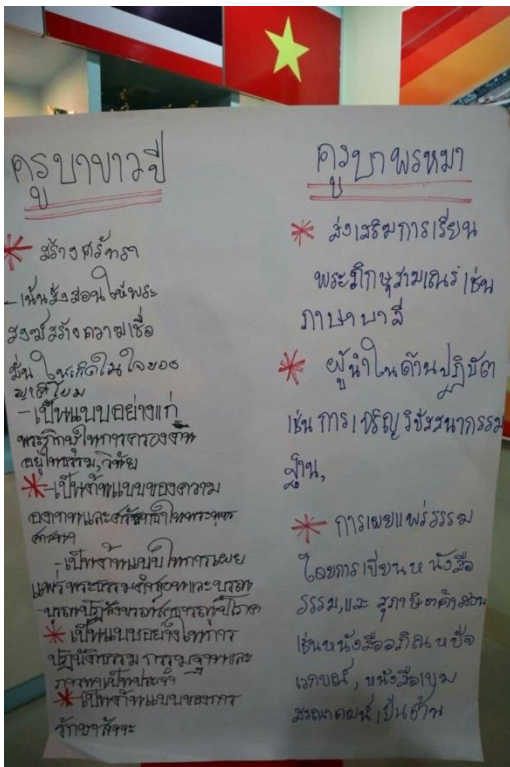 ครูบาขาวปี
* สร้างศรัทธา
- เน้นสั่งสอนให้พระ
สงฆ์สร้างความเชื่อ
มั่น ให้เกิดในใจของ
ญาติโยม
- เป็นแบบอย่างแก่
พระภิกษุในการครองตน
อยู่ในธรรม,วินัย
* - เป็นต้นแบบของความ
อดทนและศรัทธาในพระพุทธ
ศาสนา
- เป็นต้นแบบในการเผย
แผ่พระธรรมคำสอนและบูรณะ
- บูรณปฏิสังขรณ์สาธารณูปโภค
* เป็นแบบอย่างในการ
ปฏิบัติธรรม กรรมฐานและ
ภาวนาเป็นประจำ
* - เป็นต้นแบบของการ
รักษาสัจจะ
ครูบาพรหมา
* ส่งเสริมการเรียน
พระภิกษุสามเณร เช่น
ภาษาบาลี
* ผู้นำในด้านปฏิบัติ
เช่น การเจริญวิปัสสนากรรม
ฐาน,
* การเผยแพร่ธรรม
โดยการเขียนหนังสือ
ธรรม,และ สุภาษิตคำสอน
เช่นหนังสืออภิณหปัจ
เวกขณ์, หนังสือ
มรณาคมน์, เป็นต้น